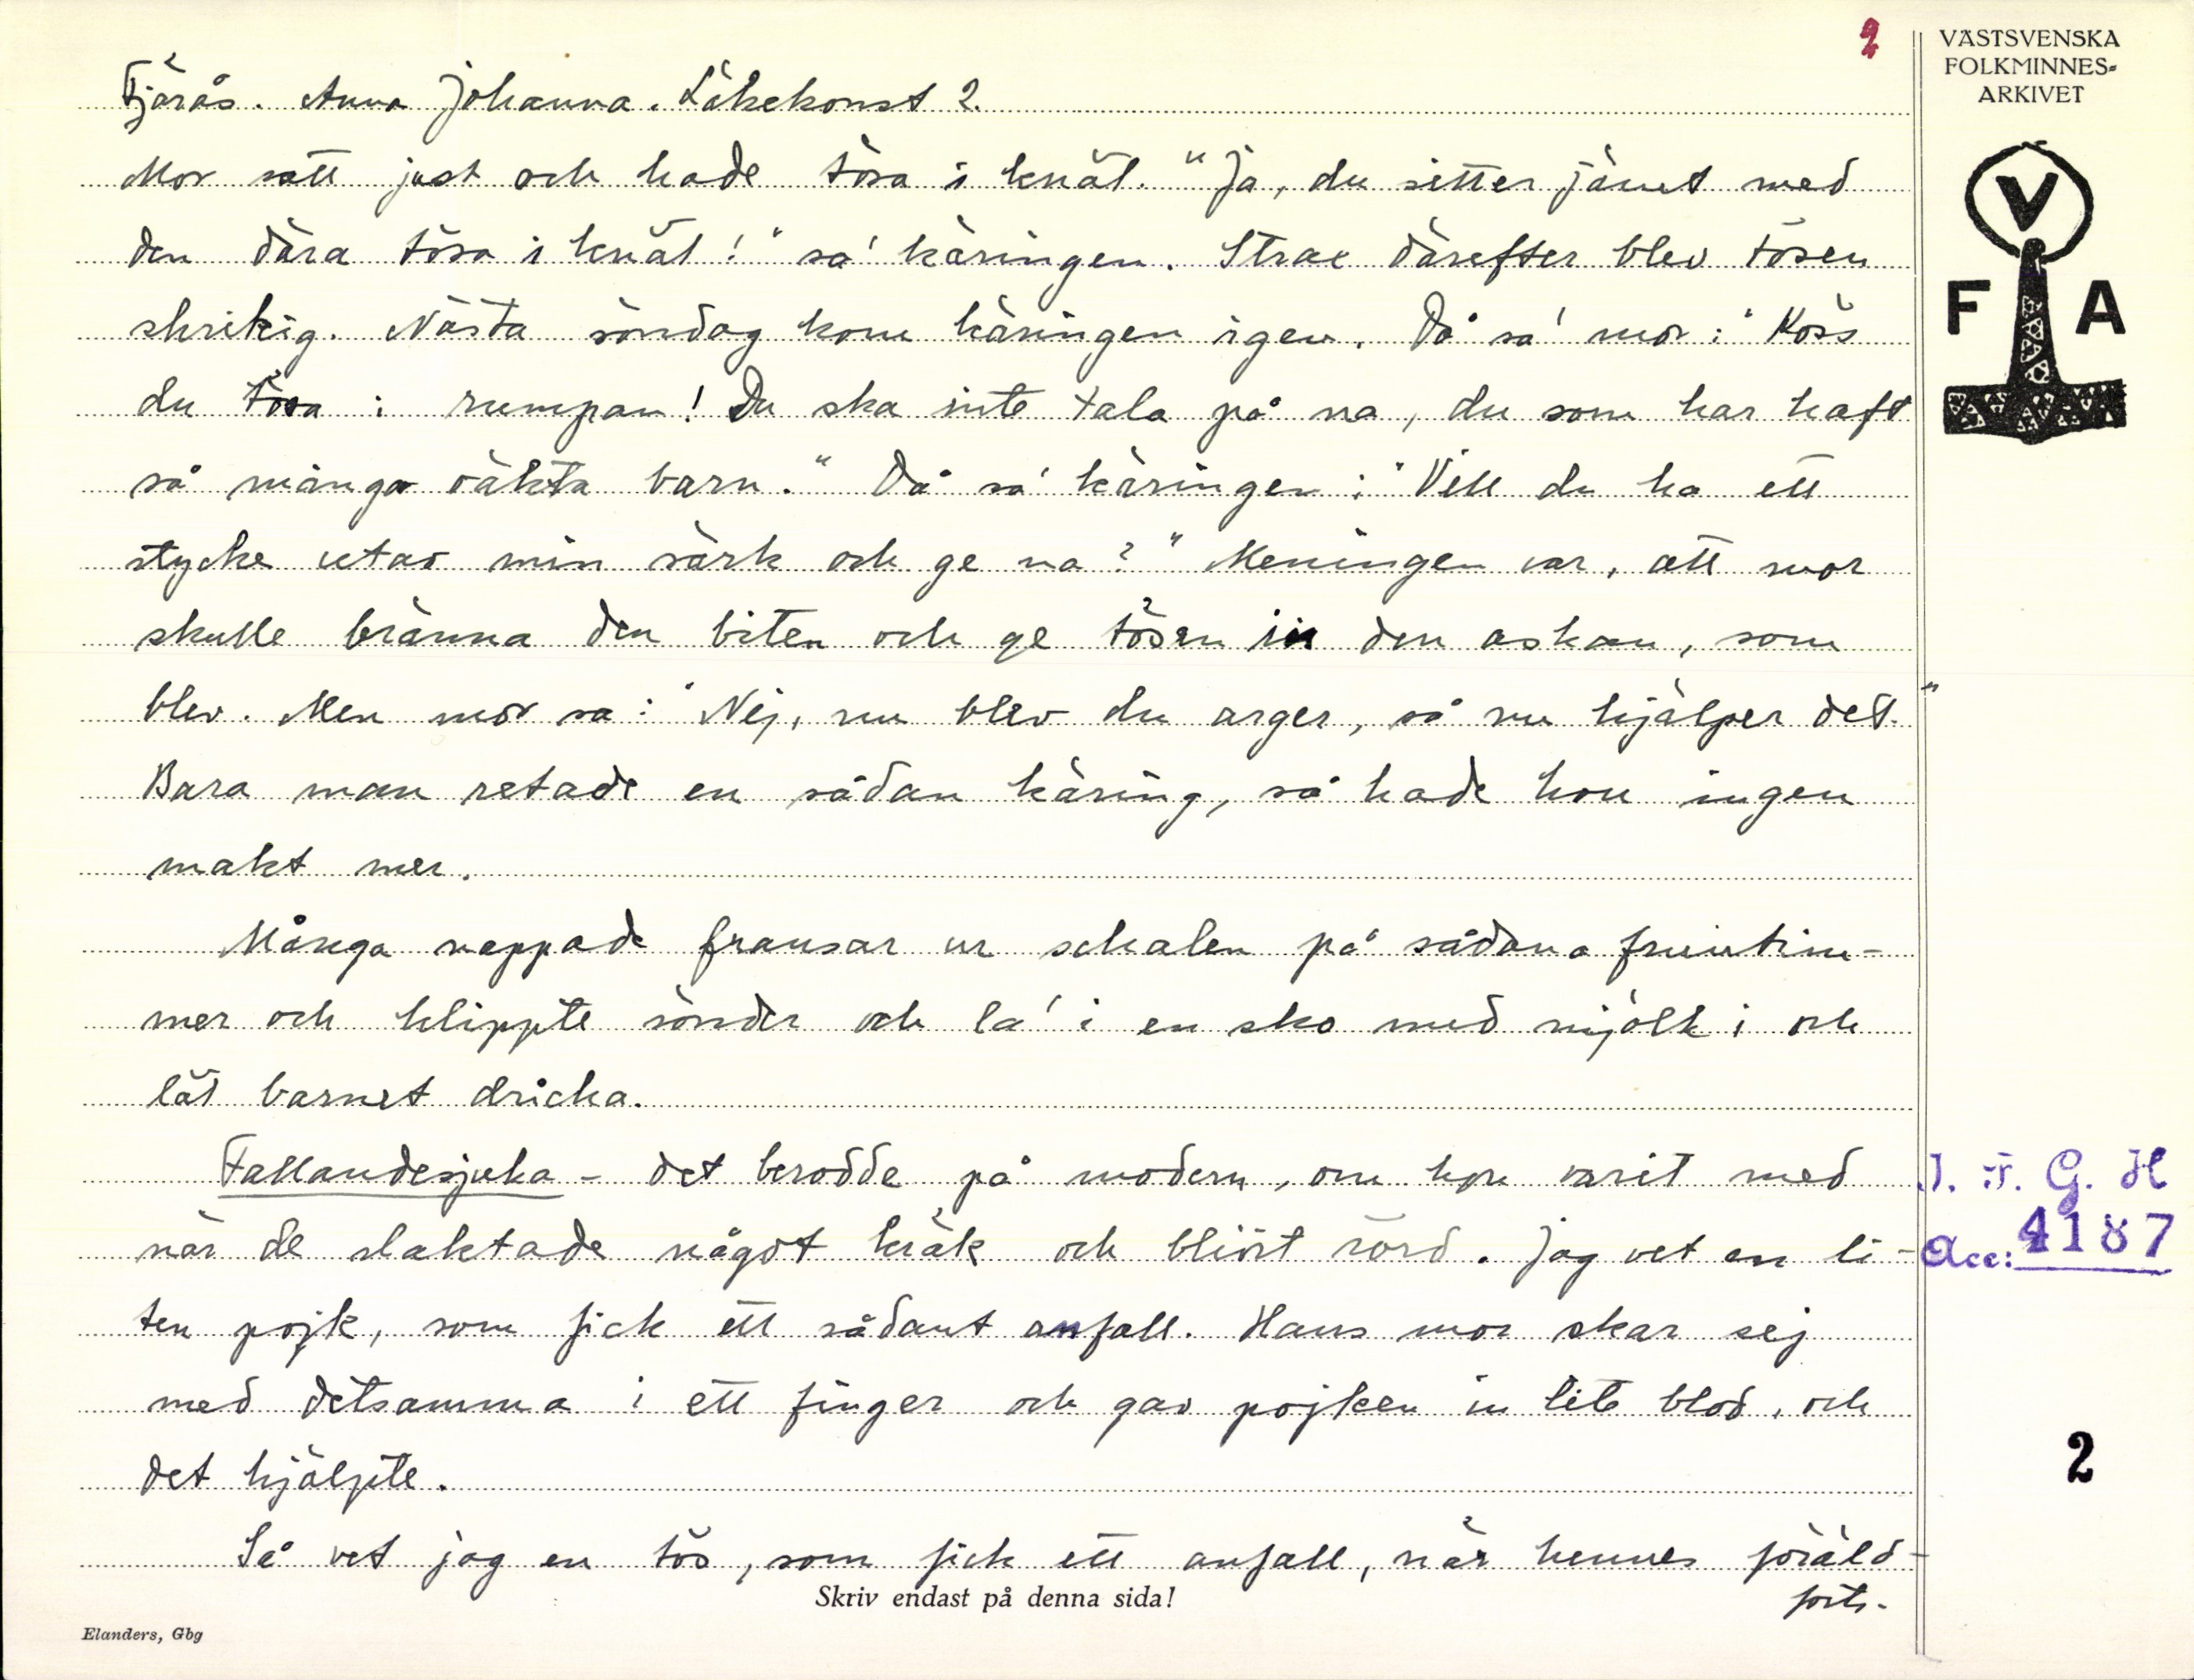 2
VÄSTSVENSKA
FOLKMINNES-
ARKIVET
V
F A
Fjärås. Anna Johanna. Läkekonst 2.
Mor satt just och hade tösa i knät. "Ja, du sitter jämt med
den dära tösa i knät!" sa' käringen. Strax därefter blev tösen
skrikig. Nästa söndag kom käringen igen. Då sa' mor: "Köss
du tösa i rumpan! Du ska inte tala på na, du som har haft
så många oäkta barn." Då sa' käringen: "Vill du ha ett
stycke utav min särk och ge na?" Meningen var, att mor
skulle bränna den biten och ge tösen in den askan, som
blev. Men mor sa: "Nej, nu blev du arger, så nu hjälper det."
Bara man retade en sådan käring, så hade hon ingen
makt mer.
Många nappade fransar ur schalen på sådana fruntim-
mer och klippte sönder och la' i en sko med mjölk i och
lät barnet dricka.
Fallandesjuka - det berodde på modern, om hon varit med
när de slaktade något kräk och blivit rörd. Jag vet en li-
ten pojk, som fick ett sådant anfall. Hans mor skar sej
med detsamma i ett finger och gav pojken in lite blod, och
det hjälpte.
Så vet jag en tös, som fick ett anfall, när hennes föräld-
forts.
I. F. G. H
Acc: 4187
2
Skriv endast på denna sida!
Elanders, Gbg